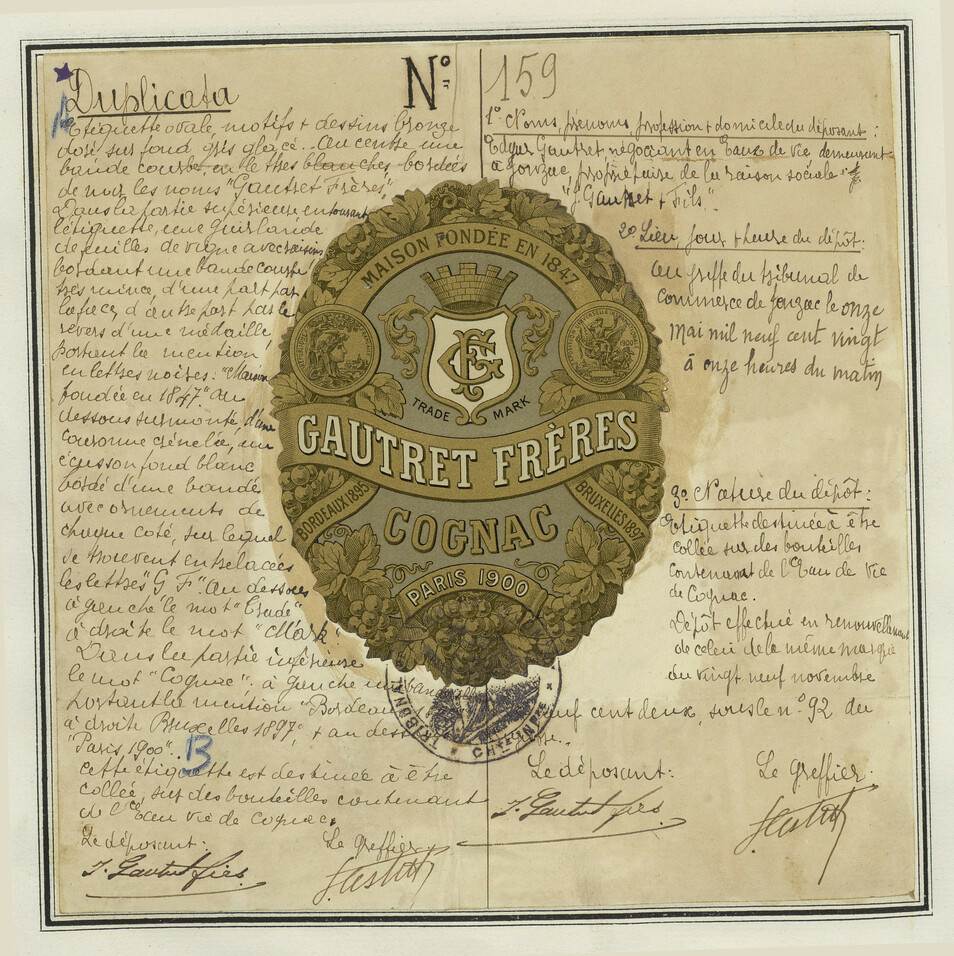 Duplicata
Etiquette ovale, motifs & dessins bronze
doré sur fond grès glacé. Au centre une
bande courbe, en lettres blanches bordées
de noir les noms "Gautret Frères"
Dans la partie supérieure entourant
l'étiquette, une guirlande
de feuilles de vigne avec raisins
bordant une bande courbe
très mince, d'une part par
la face, d'autre part par le
revers d'une médaille
portant la mention
en lettres noires: "Maison
fondée en 1847" au
dessous surmonté, d'une
couronne crénelée, un
écusson fond blanc
bordé d'une bande
avec ornements de
chaque coté, sur lequel
se trouvent entrelacées
les lettres "G F". Au dessous
à gauche le mot "Trade"
à droite le mot "Mark"
Dans la partie inférieure
le mot "Cognac": à gauche une bande
portant la mention "Bordeaux
à droite Bruxelles 1897, & au dess
"Paris 1900".
B
Cette étiquette est destinée à être
collée, sur des bouteilles contenant
de l'Eau de vie de Cognac.
Le déposant:
J. Gautret fils
Le Greffier
No 159
1o Noms, prénoms, profession & domicile du déposant:
Edgar Gautret négociant en Eaux de Vie, demeurant
à Jonzac, propriétaire de la raison sociale
"J. Gautret & Fils".
2o Lieu, jour & heure du dépôt:
Au greffe du tribunal de
commerce de Jonzac le onze
Mai mil neuf cent vingt
à onze heures du matin
3o Nature du dépôt:
Etiquette destinée à être
collée sur des bouteilles
contenant de l'Eau de Vie
de Cognac.
Dépôt effectué en renouvellement
de celui de la même marque
du vingt neuf novembre
neuf cent deux, sous le no 92 du
Le déposant:
J. Gautret fils
Le Greffier.
MAISON FONDÉE EN 1847
TRADE MARK
GAUTRET FRÈRES
BORDEAUX 1895
BRUXELLES 1897
COGNAC
PARIS 1900
TRIBUNAL